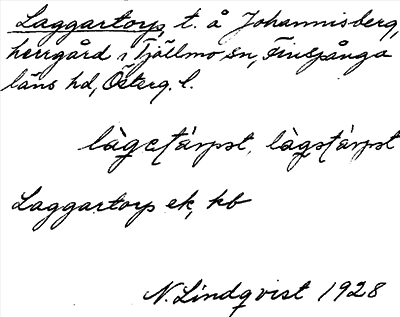 Laggartorp, t. å Johannisberg,
herrgård i Tjällmo sn, Finspånga
läns hd, Österg. l.
Laggartorp ek, kb
N. Lindqvist 1928